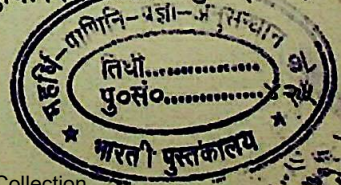 महर्षि-पाणिनि-प्रज्ञा-अनुसन्धान
तिथी................
पु०सं०................
भारती पुस्तकालय
Collection